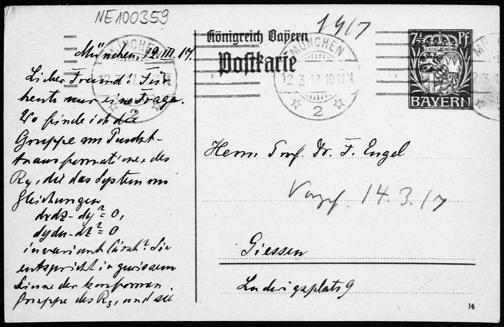 NE100359
1917
Königreich Bayern
Postkarte
MÜNCHEN
12.3.17.10-11V.
2
7½ Pf
BAYERN
München, 12.III.17.
Lieber Freund! Für
heute nur eine Frage.
Wo finde ich die
Gruppe von Punkt-
transformationen des
R₄, die das System von
Gleichungen
dxdz - dy² = 0,
dydu - dz² = 0
invariant lässt? Sie
entspricht in gewissem
Sinne der konformen
Gruppe des R₃, und sie
Herrn Prof. Dr. F. Engel
14.3.17
Giessen
Ludwigsplatz 9
16